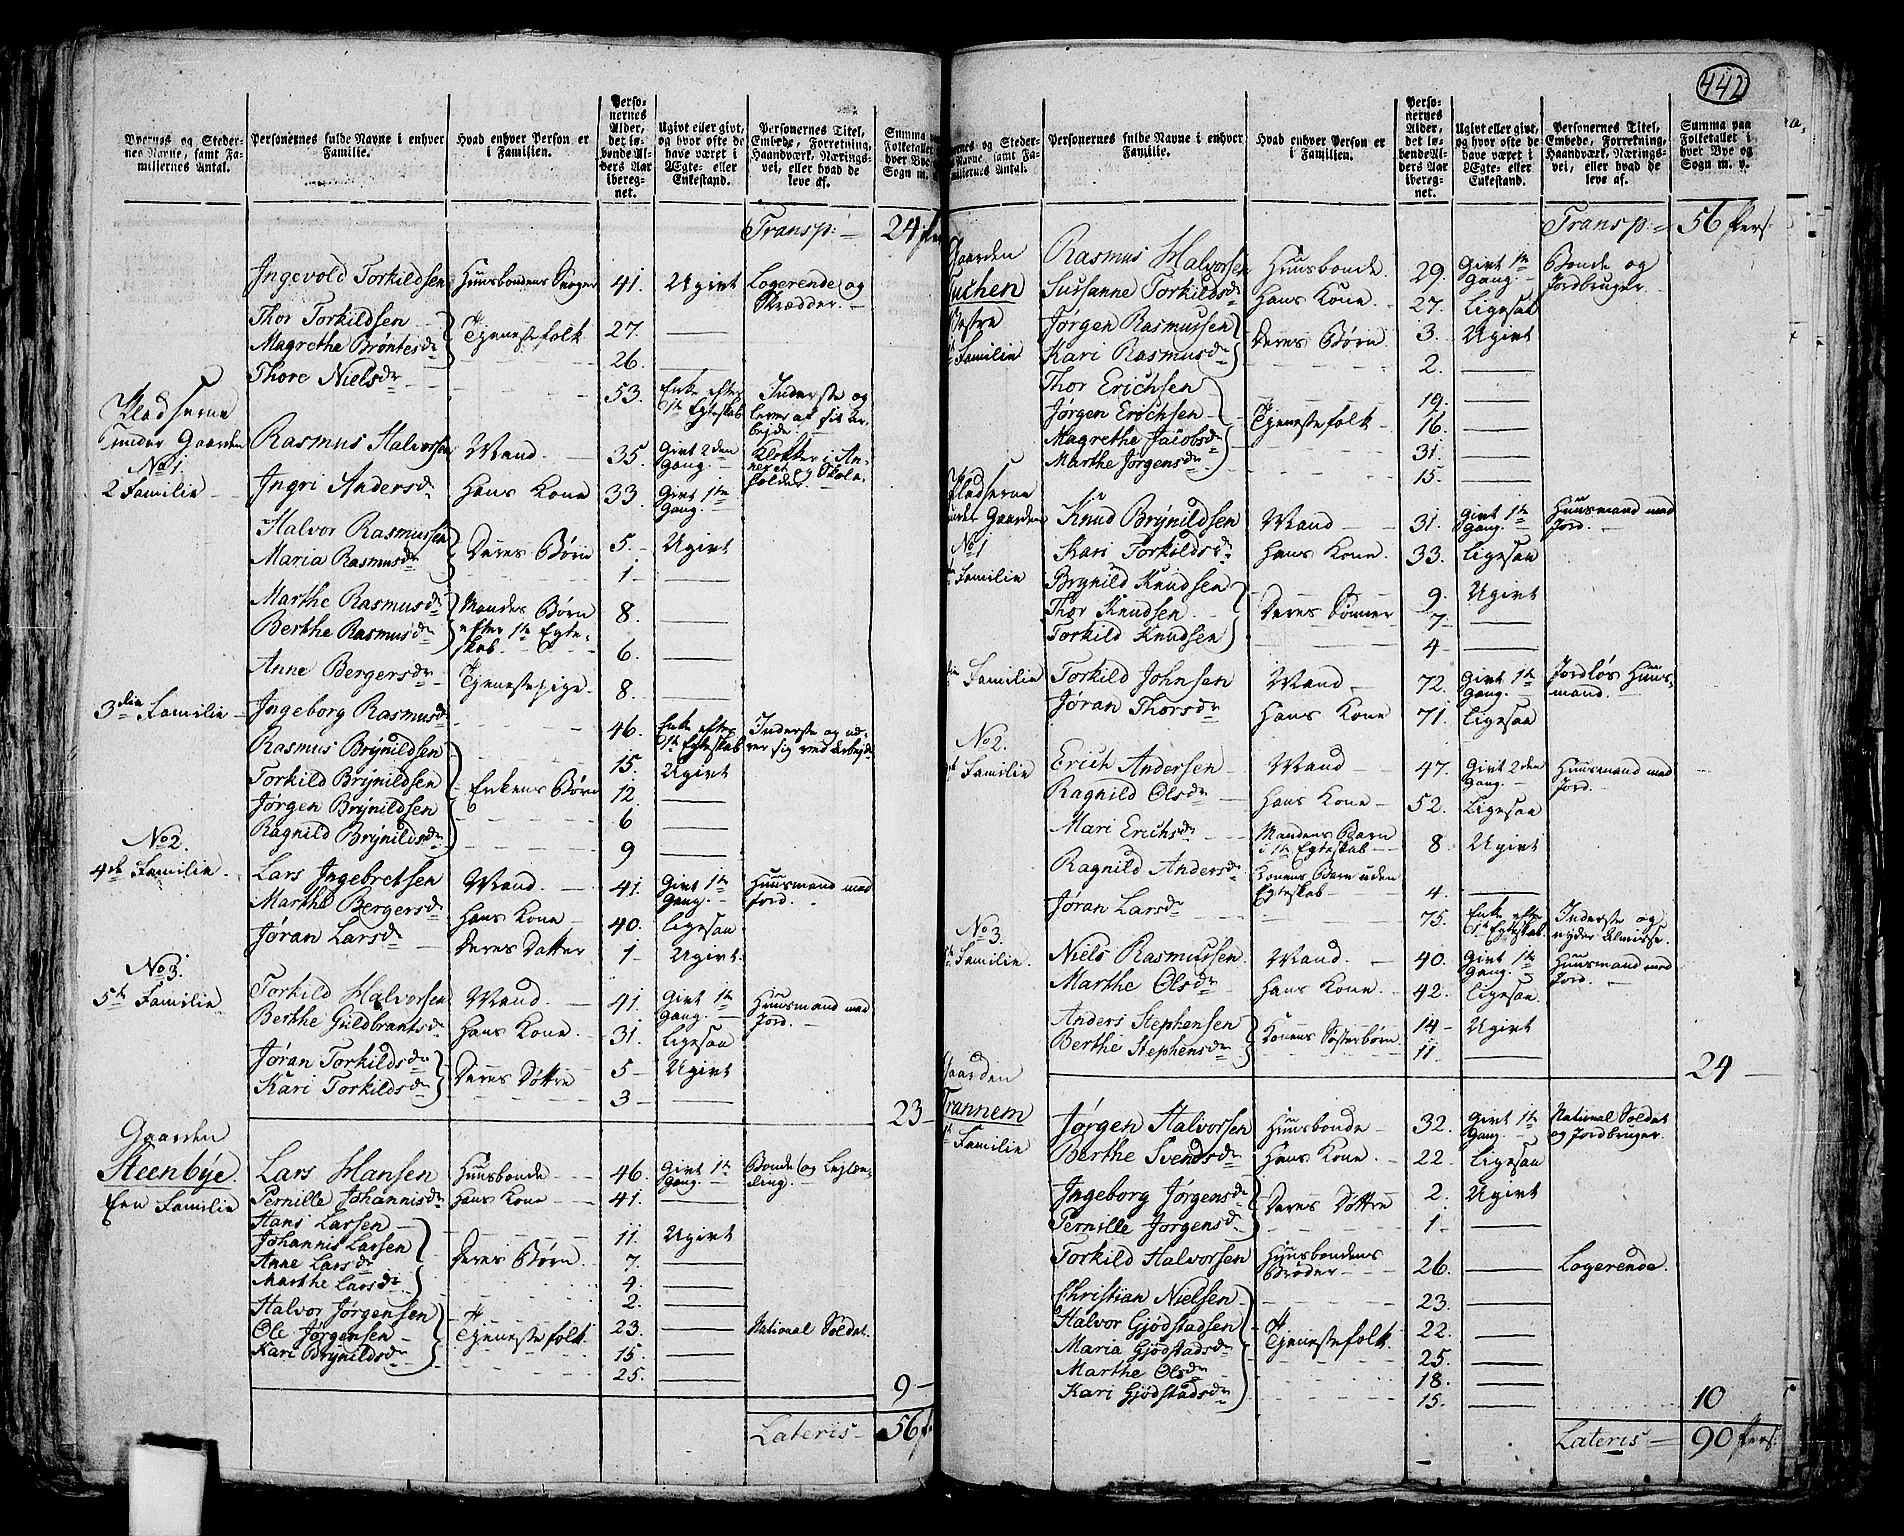 442
Byernes og Steder-
nes Navne, samt Fa-
miliernes Antal.
Personernes fulde Navne i enhver
Familie.
Hvad enhver Person er
i Familien.
Perso-
nernes
Alder,
det lø-
bende Al-
ders Aar
iberegnet.
Ugivt eller givt,
og hvor ofte de
have været i
Ægte- eller
Enkestand.
Personernes Titel,
Embede, Forretning,
Haandværk, Nærings-
vei, eller hvad de
leve af.
Summa paa
Folketallet i
hver Bye og
Sogn m. v.
Transp: 24
Ingevold Torkildsen Huusbondens Svoger 41. Ugivt Logerende og
Skrædder.
Thor Torkildsen Tjenestefolk 27. —
Magrethe Brøntesdr 26. —
Thore Nielsdr 53. Enke efter Inderste og
1te Egteskab lever af sit Ar-
bejde.
Pladserne
under Gaarden Rasmus Halvorsen Mand 35. Givt 2den Klokker i An-
No 1. Gang. nexet og Skole-
holder.
2 Familie Ingri Andersdr Hans Kone 33. Givt 1te
Gang.
Halvor Rasmussen Deres Børn 5. Ugivt
Maria Rasmusdr 1. —
Marthe Rasmusdr Mandes Børn 8. —
Berthe Rasmusdr efter 1te Egte- 6. —
skab
Anne Bergersdr Tjenestepige 8. —
3die Familie Ingeborg Rasmusdr 46. Enke efter Inderste og næ-
1te Egteskab rer sig ved Arbejde
Rasmus Brynildsen 15. Ugivt
Torkild Brynildsen Enkens Børn 12. —
Jørgen Brynildsen 6 —
Ragnild Brynildsdr 9 —
No 2.
4de Familie Lars Ingebretsen Mand. 41. Givt 1te Huusmand med
Gang. Jord.
Marthe Bergersdr Hans Kone 40. ligesaa
Jøran Larsdr Deres Datter 1 Ugivt.
No 3.
5te Familie Torkild Halvorsen Mand. 41. Givt 1te Huusmand med
Gang. Jord.
Berthe Guldbrantsdr Hans Kone. 31. ligesaa
Jøran Torkildsdr Deres Døttre 5 Ugivt
Kari Torkildsdr 3 —
23
Gaarden
Steenbye. Lars Hansen Huusbonde 46. Givt 1te Bonde og Lejlæn-
Een Familie Gang. ding.
Pernille Johannisdr Hans Kone 41. —
Hans Larsen 11. Ugivt
Johannis Larsen Deres Børn. 7. —
Anne Larsdr 4. —
Marthe Larsdr 2. —
Halvor Jørgensen Tjenestefolk 23. — National Soldat.
Ole Jørgensen 15. —
Kari Brynildsdr 25. —
9
Lateris 56
Byernes og Steder-
nes Navne samt Fa-
miliernes Antal.
Personernes fulde Navne i enhver
Familie.
Hvad enhver Person er
i Familien.
Perso-
nernes
Alder,
det lø-
bende Al-
ders Aar
iberegnet.
Ugivt eller givt,
og hvor ofte de
have været i
Ægte- eller
Enkestand.
Personernes Titel,
Embede, Forretning,
Haandværk, Nærings-
vei, eller hvad de
leve af.
Summa paa
Folketallet i
hver Bye og
Sogn m. v.
Transp: 56 Pers:
Gaarden Rasmus Halvorsen Huusbonde. 29. Givt 1te Bonde og
Gang. Jordbruger.
Sussanne Torkildsdr Hans Kone. 27. ligesaa
Jørgen Rasmussen Deres Børn. 3. Ugivt
Familie Kari Rasmusdr 2. —
Thor Erichsen 19. —
Jørgen Erichsen Tjenestefolk 16. —
Magrethe Jacobsdr 31. —
Marthe Jørgensdr 15. —
Pladserne
under Gaarden Knud Brynildsen Mand 31. Givt 1te Huusmand med
No 1 Gang. Jord.
Kari Torkildsdr Hans Kone. 33. ligesaa
Familie Brynild Knudsen 9. Ugivt
Thor Knudsen Deres Sønner 7 —
Torkild Knudsen 4 —
Familie Torkild Johnsen Mand 72. Givt 1te Jordløs Huus-
Gang. mand.
Jøran Thorsdr Hans Kone 71. ligesaa
No 2.
Familie Erich Andersen Mand 47. Givt 2den Huusmand med
Gang. Jord.
Ragnild Olsdr Hans Kone 52. ligesaa
Mari Erichsdr Mandens Barn 8 Ugivt
i 1te Egteskab
Ragnild Andersdr Konens Barn uden 4. —
Egteskab
Jøran Larsdr 75. Enke efter Inderste og
1te Egteskab. nyder Almisse.
No 3.
Familie. Niels Rasmussen Mand. 40. Givt 1te Huusmand med
Gang. Jord.
Marthe Olsdr Hans Kone 42. ligesaa.
Anders Stephensen Konens Søsterbørn 14 Ugivt
Berthe Stephensdr 11. —
24
Gaarden
Trannem Jørgen Halvorsen Huusbonde 32. Givt 1te National Soldat
Familie Gang. og Jordbruger.
Berthe Svendsdr Hans Kone. 22. ligesaa
Ingeborg Jørgensdr Deres Døttre 2. Ugivt
Pernille Jørgensdr 1 —
Torkild Halvorsen Huusbondens 26. — Logerende.
Broder
Christian Nielsen 23. —
Halvor Gjødstadsen Tjenestefolk 22. —
Maria Gjødstadsdr 25. —
Marthe Olsdr 18. —
Kari Gjødstadsdr 15. —
10
Lateris 90 Pers: